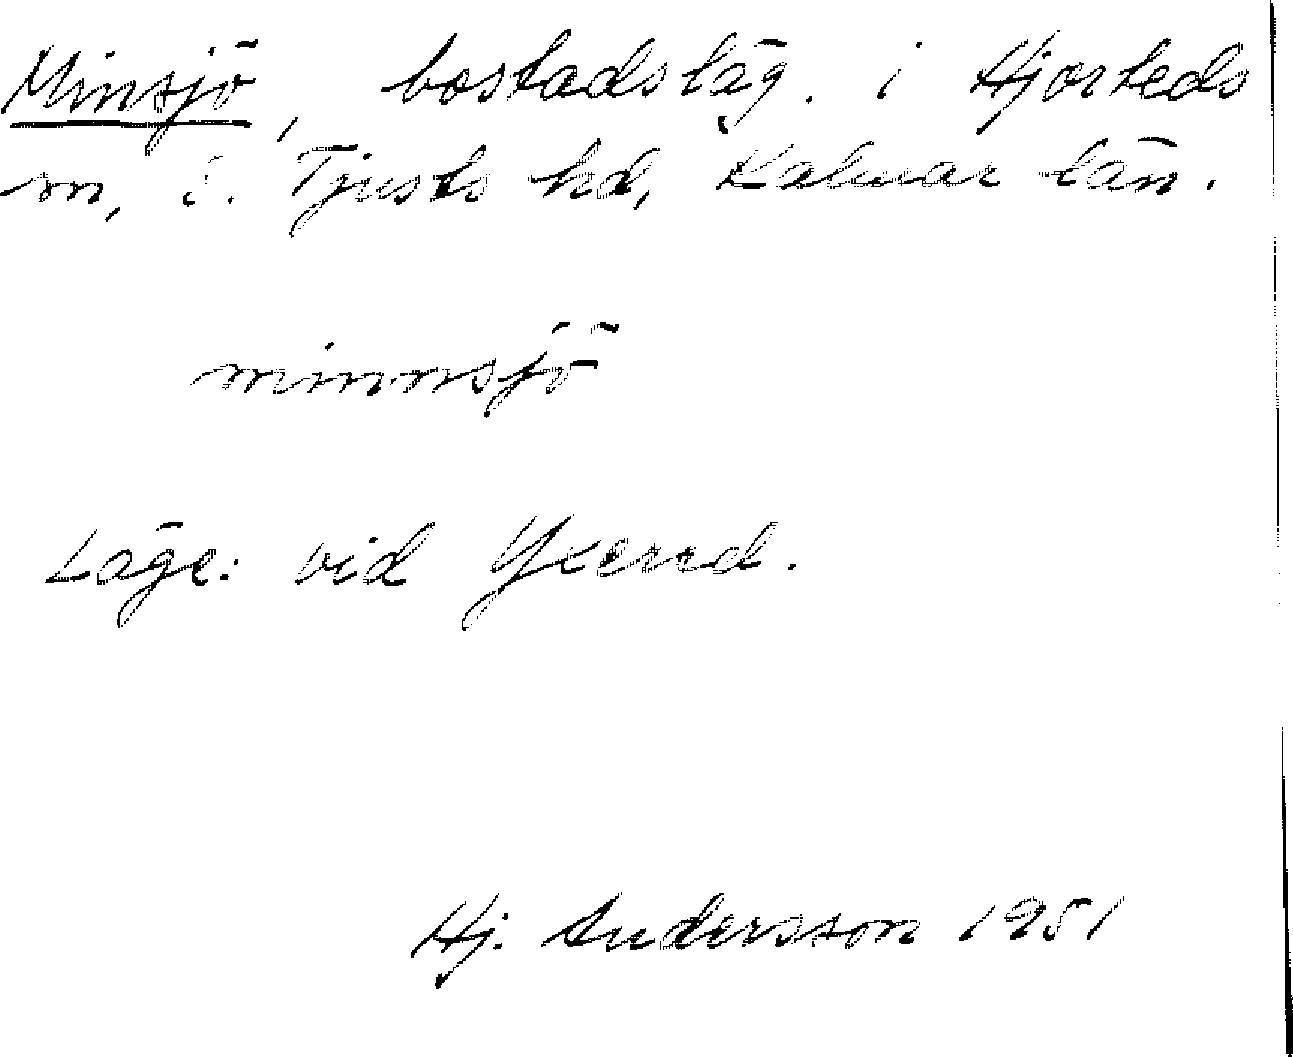 Minsjö, bostadsläg. i Hjorteds
sn, s. Tjusts hd, Kalmar län.
minnsjö
Läge: vid Yxered.
Hj. Andersson 1951